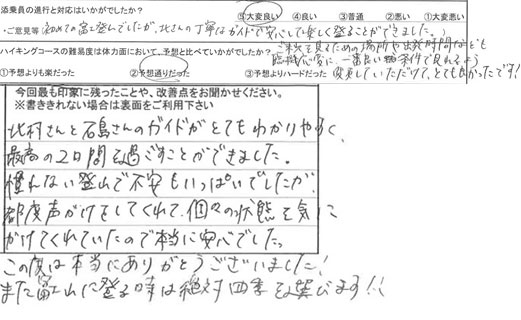 添乗員の進行と対応はいかがでしたか？ ⑤大変良い ④良い ③普通 ②悪い ①大変悪い
・ご意見等（初めての富士登山でしたが、北さんの丁寧なガイドで安心して楽しく登ることができました。）
ハイキングコースの難易度は体力面において、予想と比べていかがでしたか？
ご来光を見るための場所や出発時間なども
臨機応変に、一番良い条件で見れるよう
①予想よりも楽だった ②予想通りだった ③予想よりハードだった
変更していただけて、とても良かったです！！
今回最も印象に残ったことや、改善点をお聞かせください。
※書ききれない場合は裏面をご利用下さい
北村さんと石島さんのガイドがとてもわかりやすく、
最高の2日間を過ごすことができました。
慣れない登山で不安もいっぱいでしたが、
都度声がけをしてくれて、個々の状態を気に
かけてくれていたので本当に安心でした。
この度は本当にありがとうございました！
また富士山に登る時は絶対四季を選びます！！